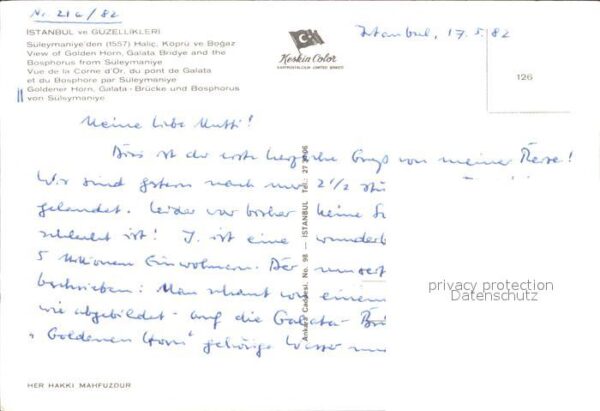 Nr. 216/82
Istanbul, 17.5.82
İSTANBUL ve GÜZELLİKLERİ
Süleymaniye'den (1557) Haliç, Köprü ve Boğaz
View of Golden Horn, Galata Bridye and the
Bosphorus from Süleymaniye
Vue de la Corne d'Or, du pont de Galata
et du Bosphore par Süleymaniye
Goldener Horn, Galata - Brücke und Bosphorus
von Süleymaniye
Keskin Color
126
Meine liebe Mutti!
Dies ist der erste herzliche Gruß von meiner Reise!
Wir sind gestern nach nur 2 1/2
gelandet. Leider war bisher keine
schlecht ist! I. ist eine wunderb
5 Millionen Einwohnern. Der
beschrieben: Man schaut von einem
wie abgebildet - auf die Galata - Brü
"Goldenen Horn" gehörige Wasser
Ankara Caddesi, No. 98 — İSTANBUL Tel.: 27
privacy protection
Datenschutz
HER HAKKI MAHFUZDUR